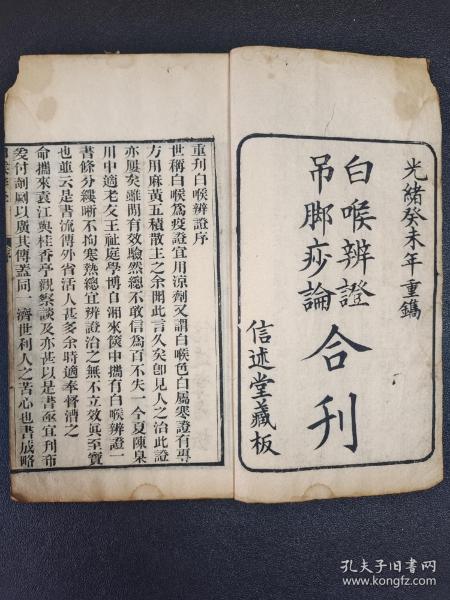 光緒癸未年重鐫
白喉辨證
吊脚痧論
合刊
信述堂藏板
重刋白喉辨證序
世稱白喉為疫證宜用涼劑又謂白喉色白屬寒證有專
方用麻黃五積散主之余聞此言久矣卽見人之治此證
亦屢矣雖間有效驗然總不敢信為百不失一今夏陳臬
用中適老友王祉庭學博自湘來篋中攜有白喉辨證一
書條分縷晰不拘寒熱總宜辨證治之無不立效眞至寶
也並云是書流傳外省活人甚多余時適奉督漕之
命攜來袁江與桂香亭觀察談及亦甚以是書亟宜刋布
爰付剞劂以廣其傳蓋同一濟世利人之苦心也書成略
孔夫子旧书网
www.kongfz.com